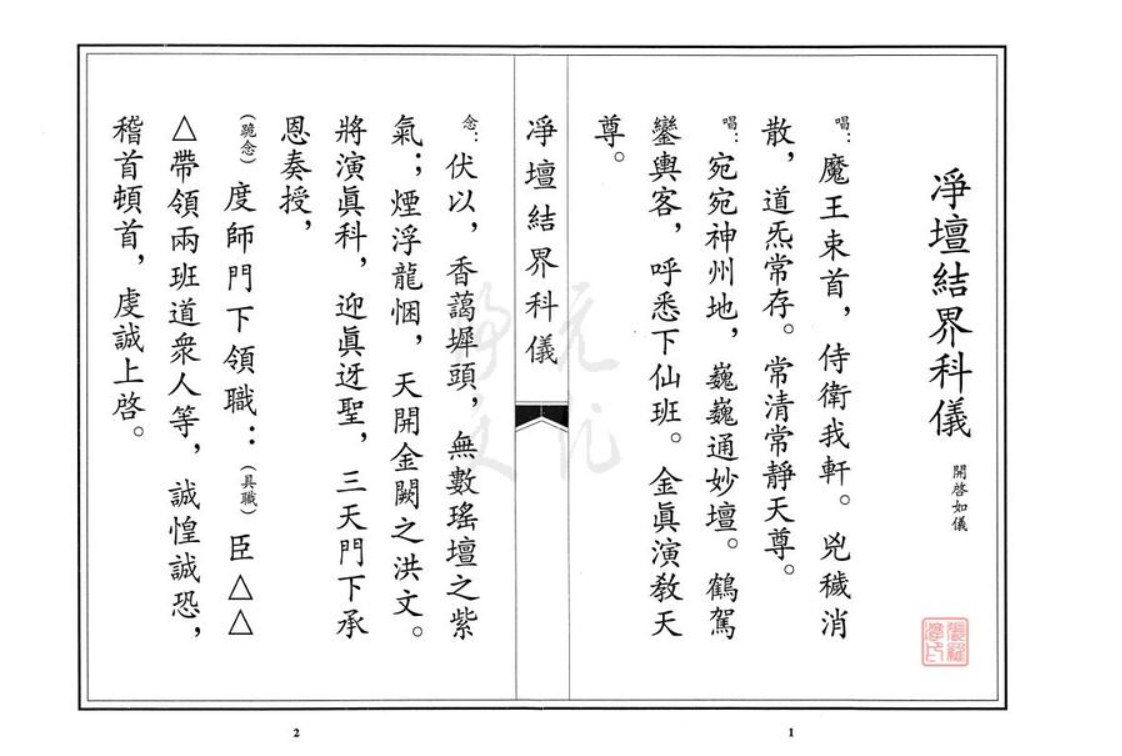 淨壇結界科儀 開啓如儀
唱：魔王束首，侍衛我軒。兇穢消
散，道炁常存。常清常靜天尊。
唱：宛宛神州地，巍巍通妙壇。鶴駕
鑾輿客，呼悉下仙班。金眞演敎天
尊。
淨壇結界科儀
念：伏以，香藹墀頭，無數瑤壇之紫
氣；煙浮龍悃，天開金闕之洪文。
將演眞科，迎眞迓聖，三天門下承
恩奏授，
（跪念）度師門下領職：（具職）臣△△
△帶領兩班道衆人等，誠惶誠恐，
稽首頓首，虔誠上啓。
1
2